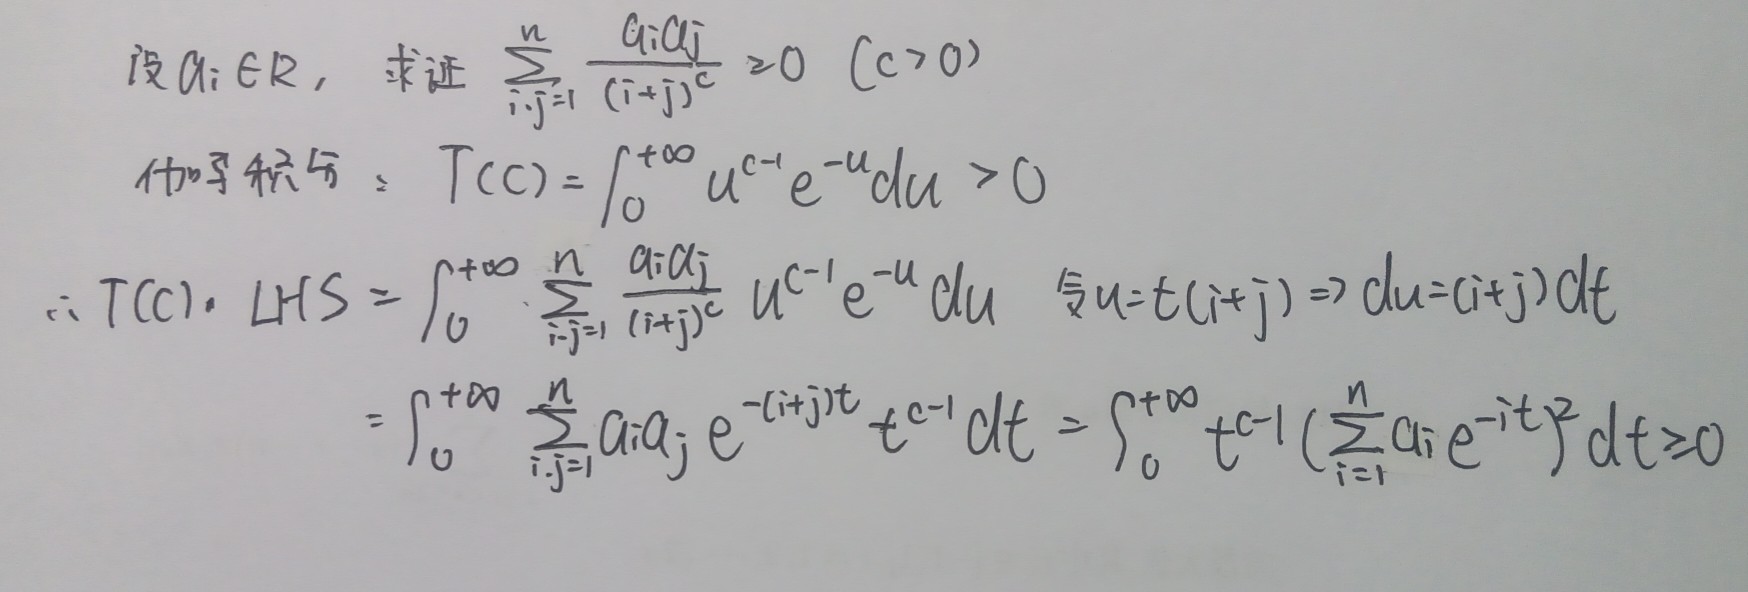 设 aᵢ∈R, 求证 ∑_{i,j=1}^{n} aᵢaⱼ/(i+j)^c ≥0 (c>0)
伽马积分: Γ(c)=∫_0^{+∞} u^{c-1}e^{-u}du >0
∴ Γ(c)· LHS = ∫_0^{+∞} ∑_{i,j=1}^{n} aᵢaⱼ/(i+j)^c u^{c-1}e^{-u}du 令u=t(i+j)⇒du=(i+j)dt
= ∫_0^{+∞} ∑_{i,j=1}^{n} aᵢaⱼ e^{-(i+j)t} t^{c-1}dt = ∫_0^{+∞} t^{c-1}(∑_{i=1}^{n} aᵢe^{-it})²dt≥0